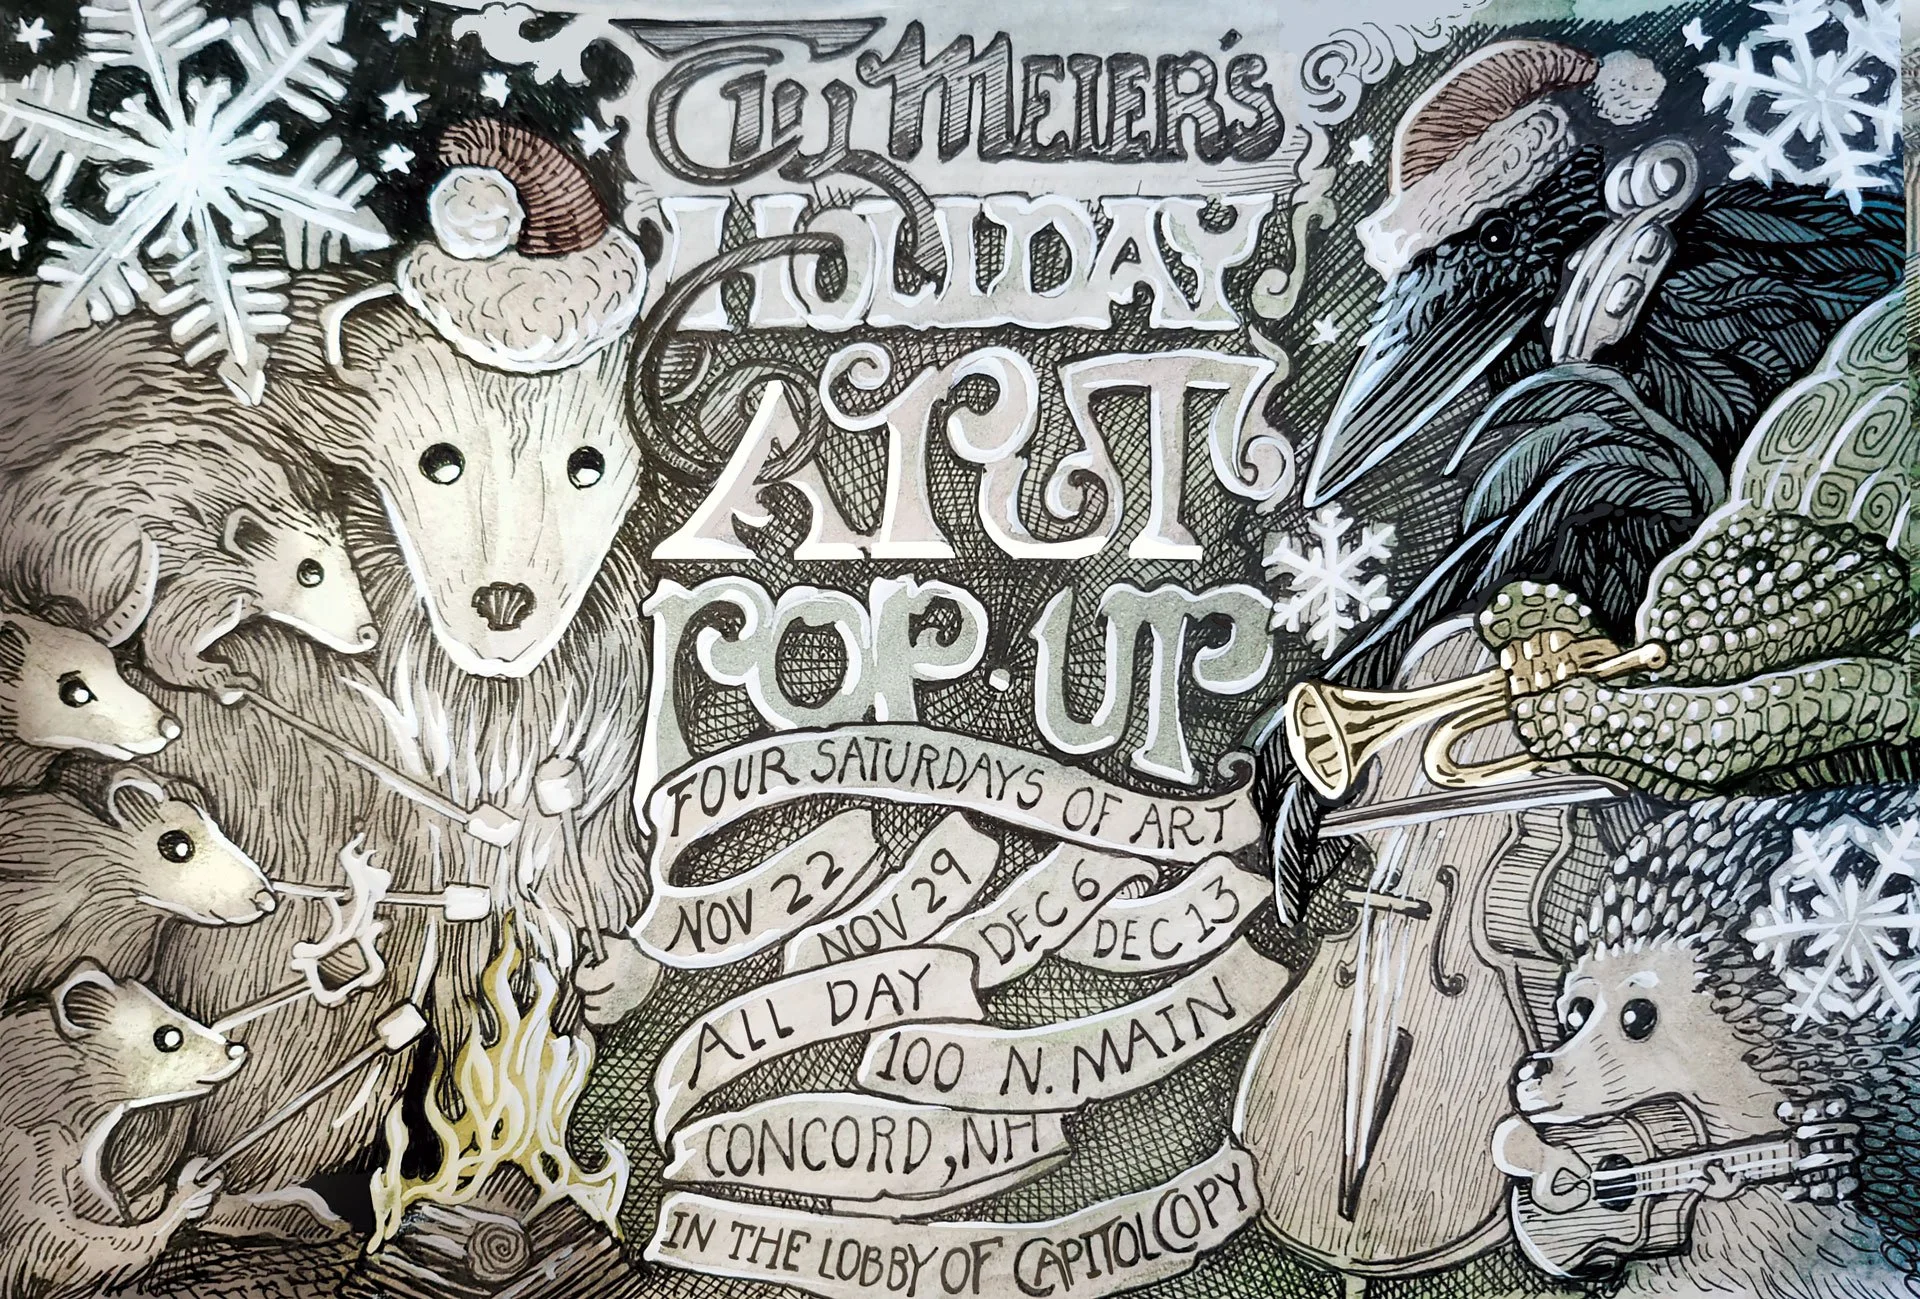 Ty MEIER'S
HOLIDAY
ART
POP-UP
FOUR SATURDAYS OF ART
NOV 22
NOV 29
DEC 6
DEC 13
ALL DAY
100 N. MAIN
CONCORD, NH
IN THE LOBBY OF CAPITOL COPY